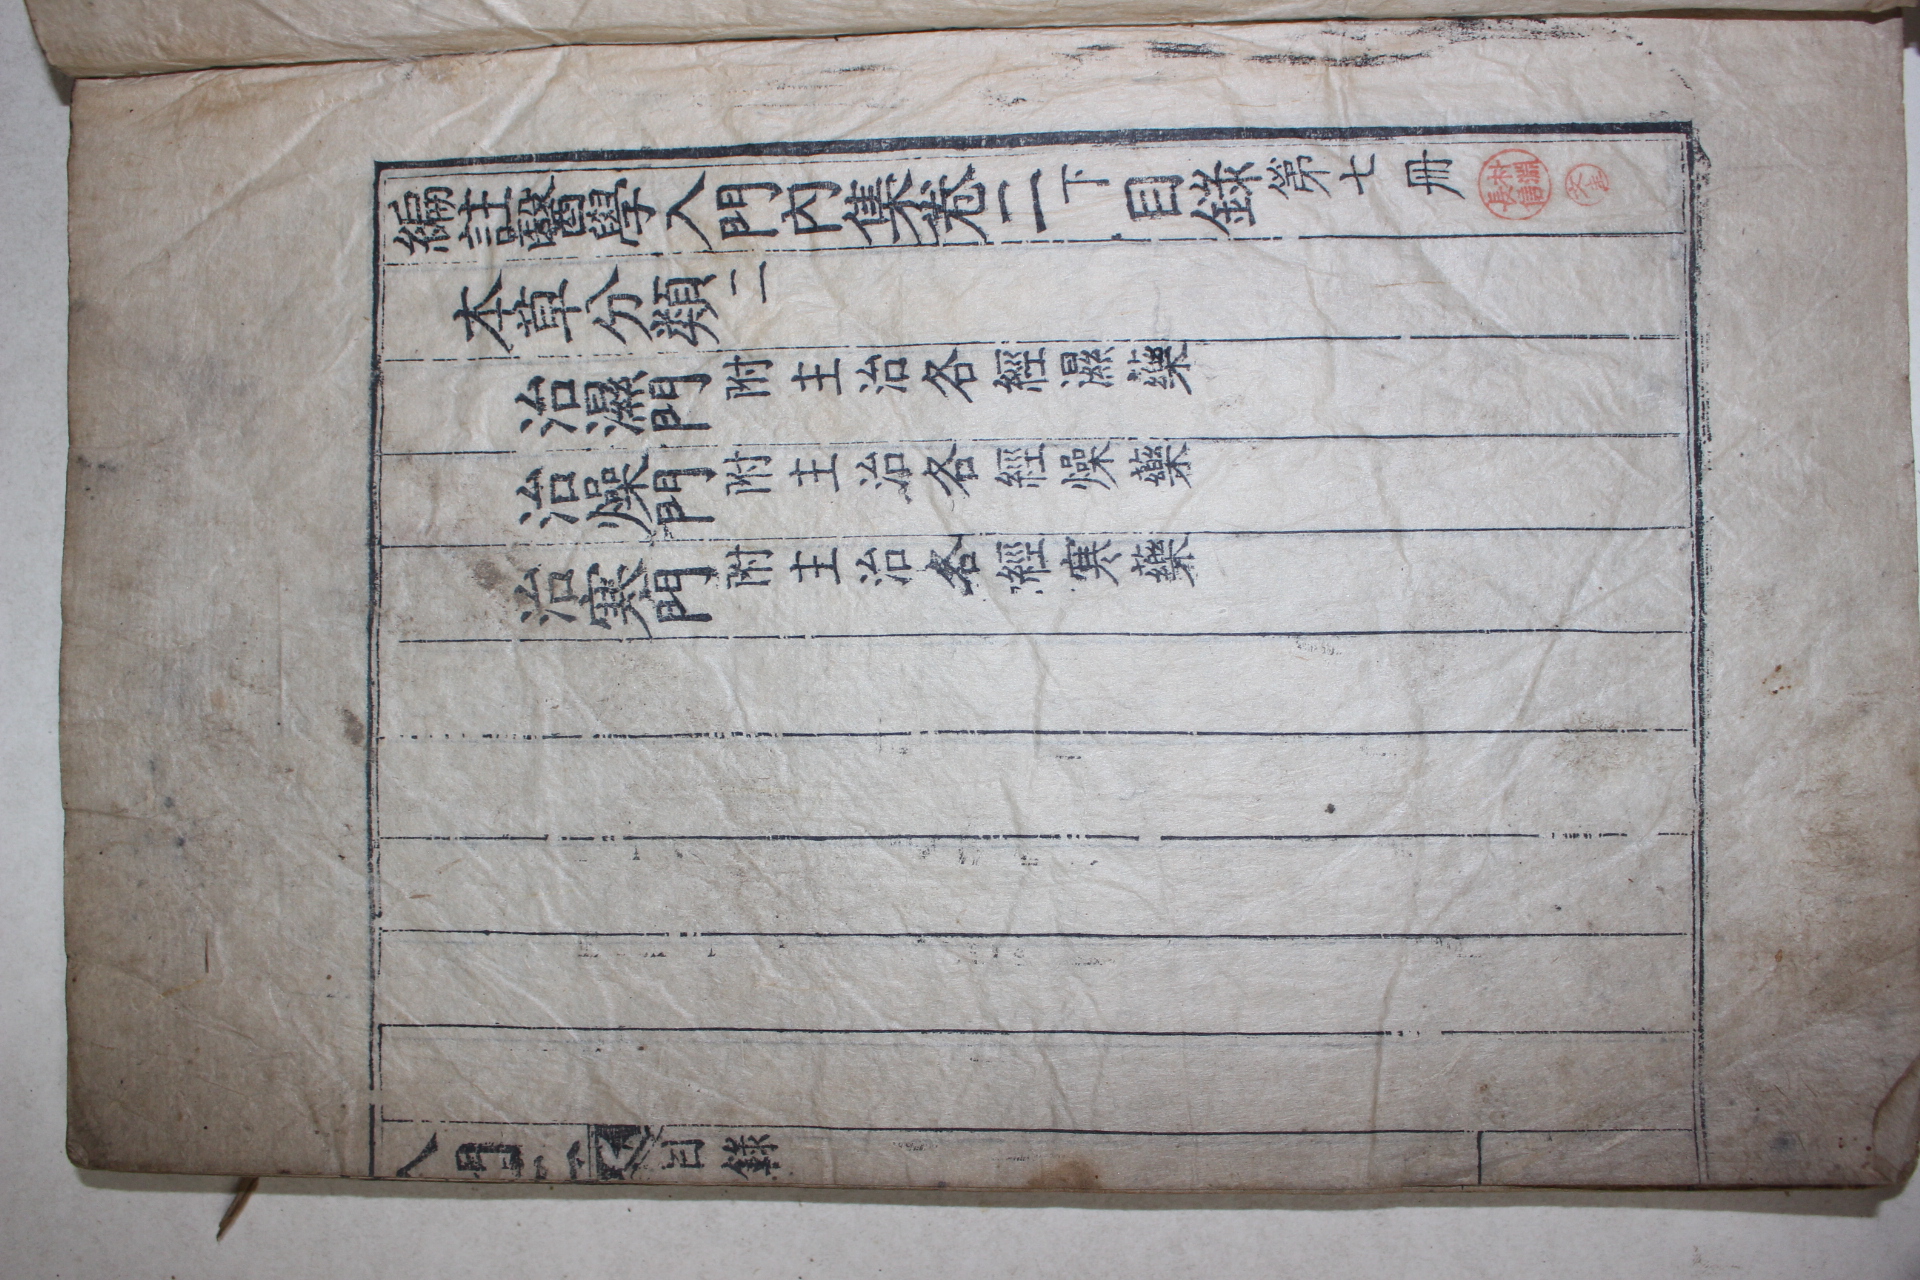 編註醫學入門內集卷二下目錄 第七冊
本草分類二
治濕門附主治各經濕藥
治燥門附主治各經燥藥
治寒門附主治各經寒藥
目錄